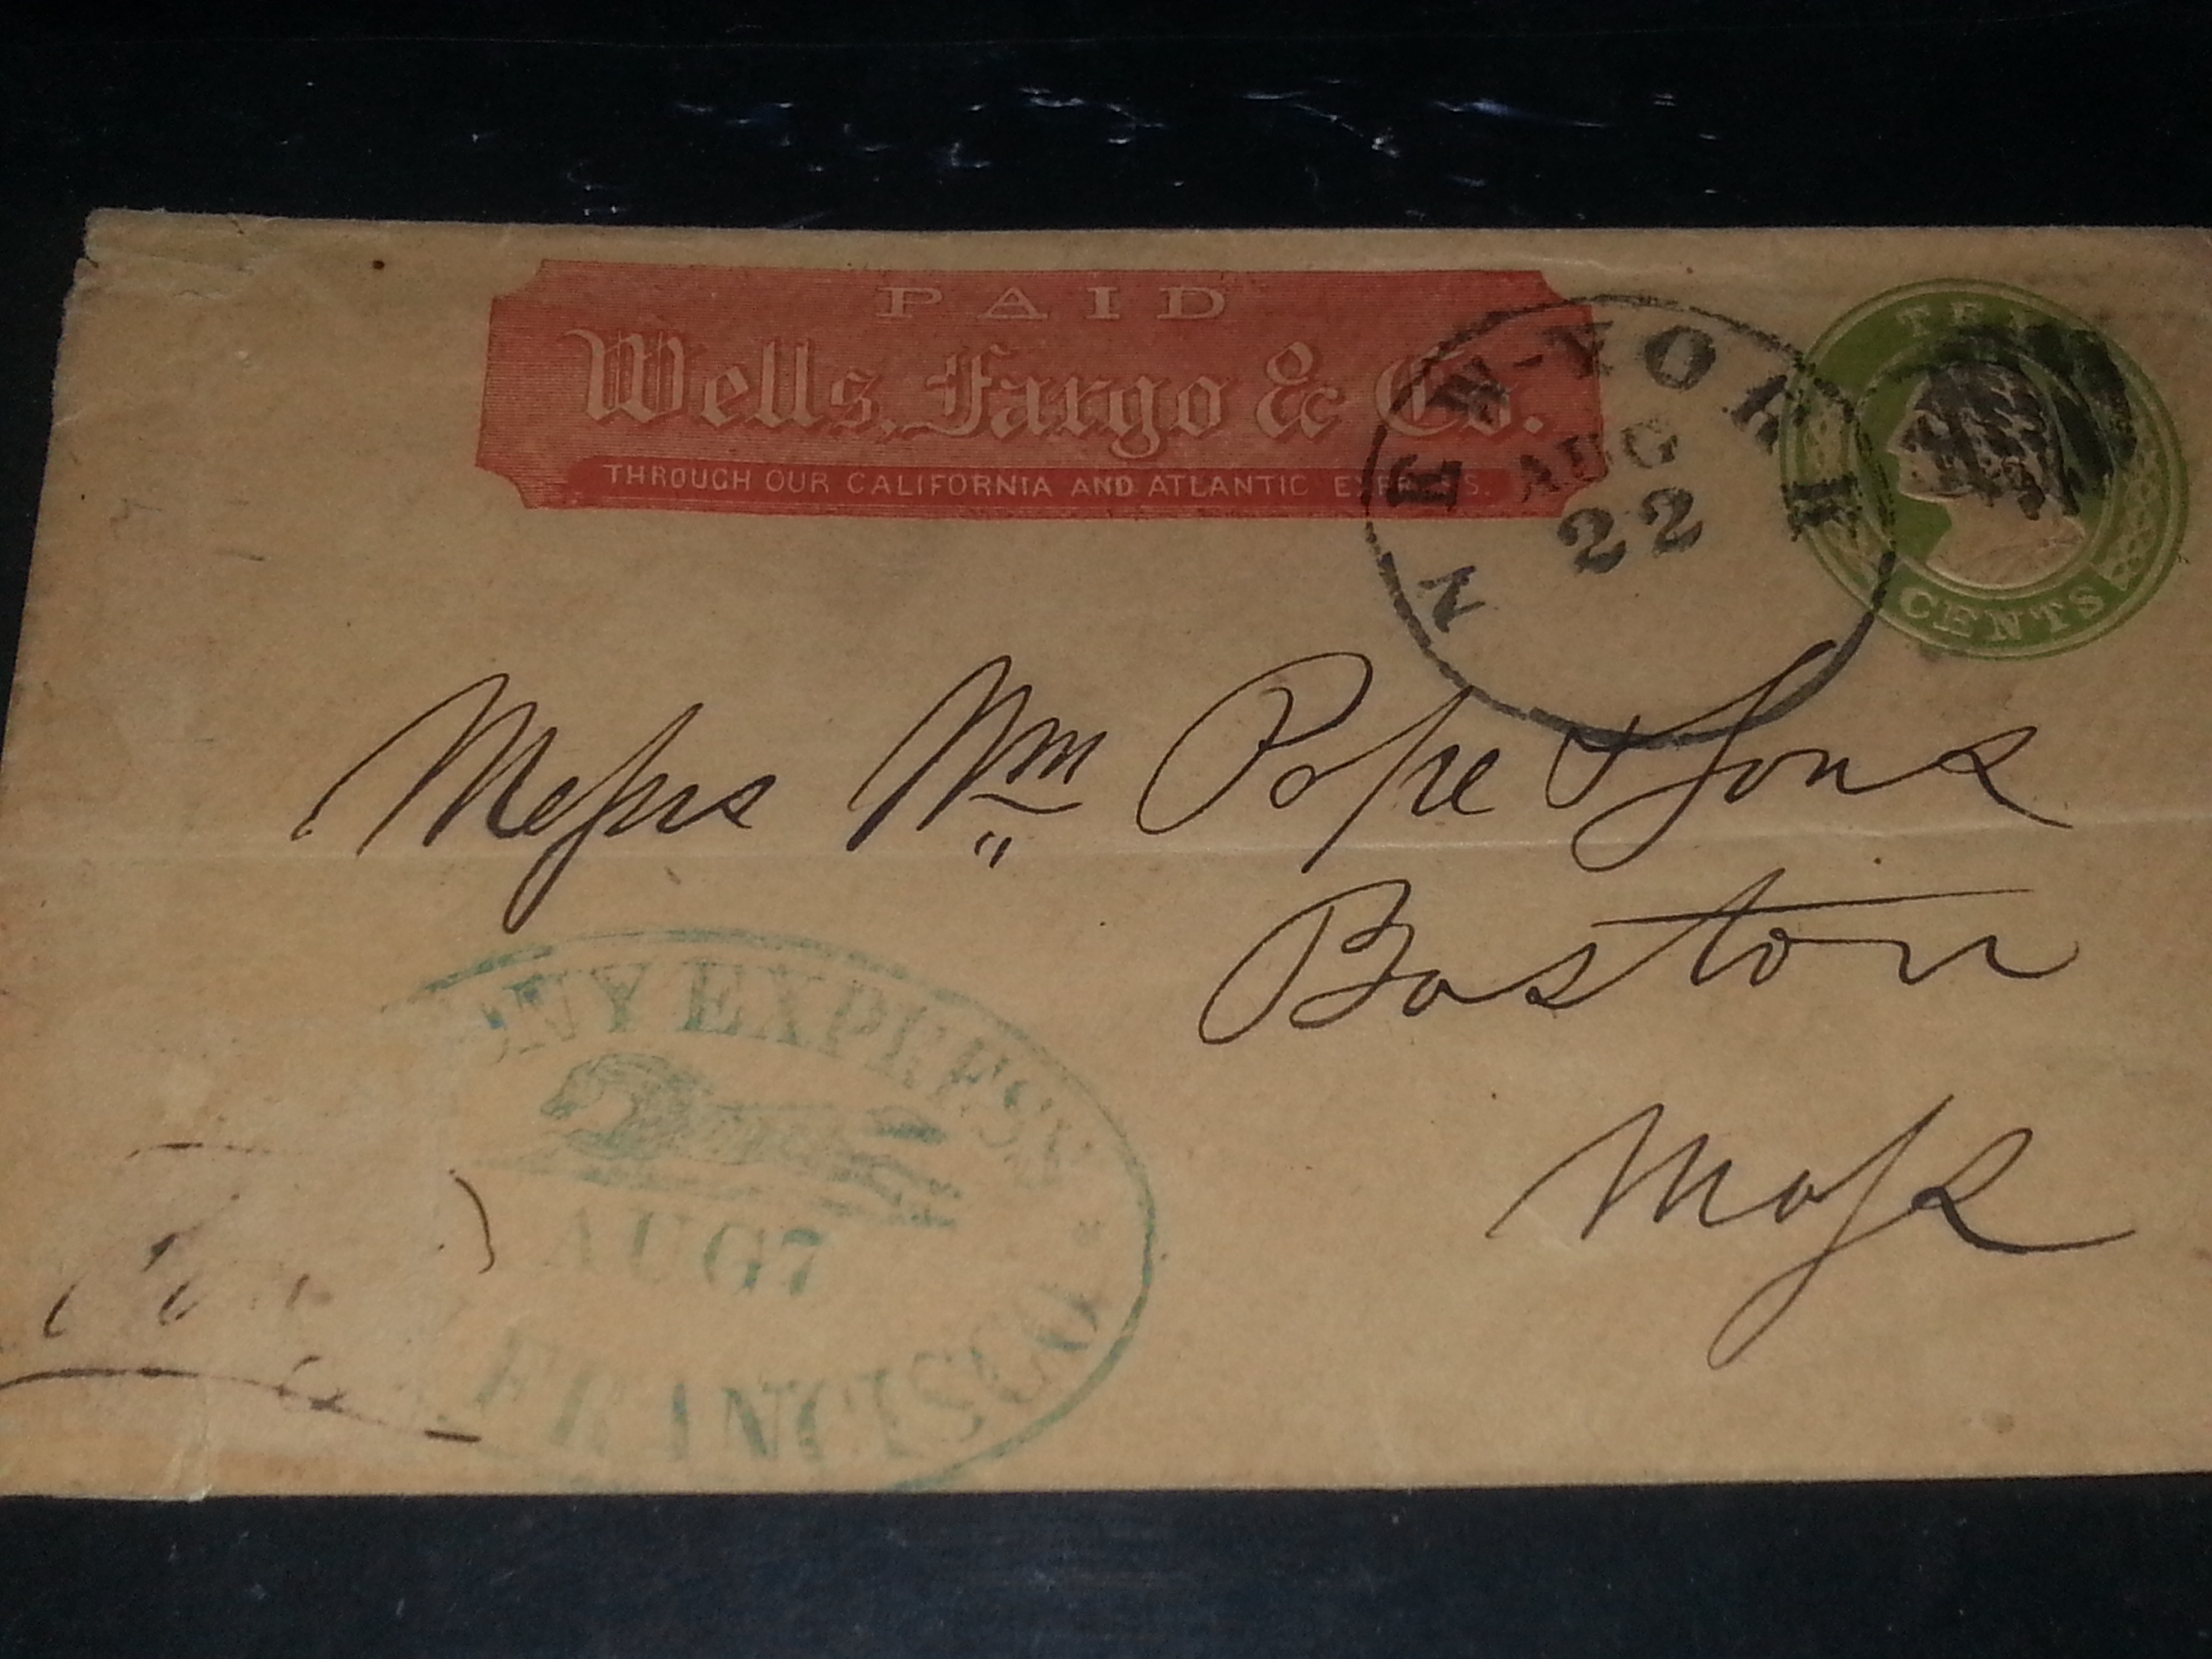 PAID
Wells, Fargo & Co.
THROUGH OUR CALIFORNIA AND ATLANTIC EXPRESS.
NEW-YORK
AUG
22
TEN
CENTS
Messrs Wm Pope & Sons
Boston
Mass
PONY EXPRESS
AUG 7
FRANCISCO